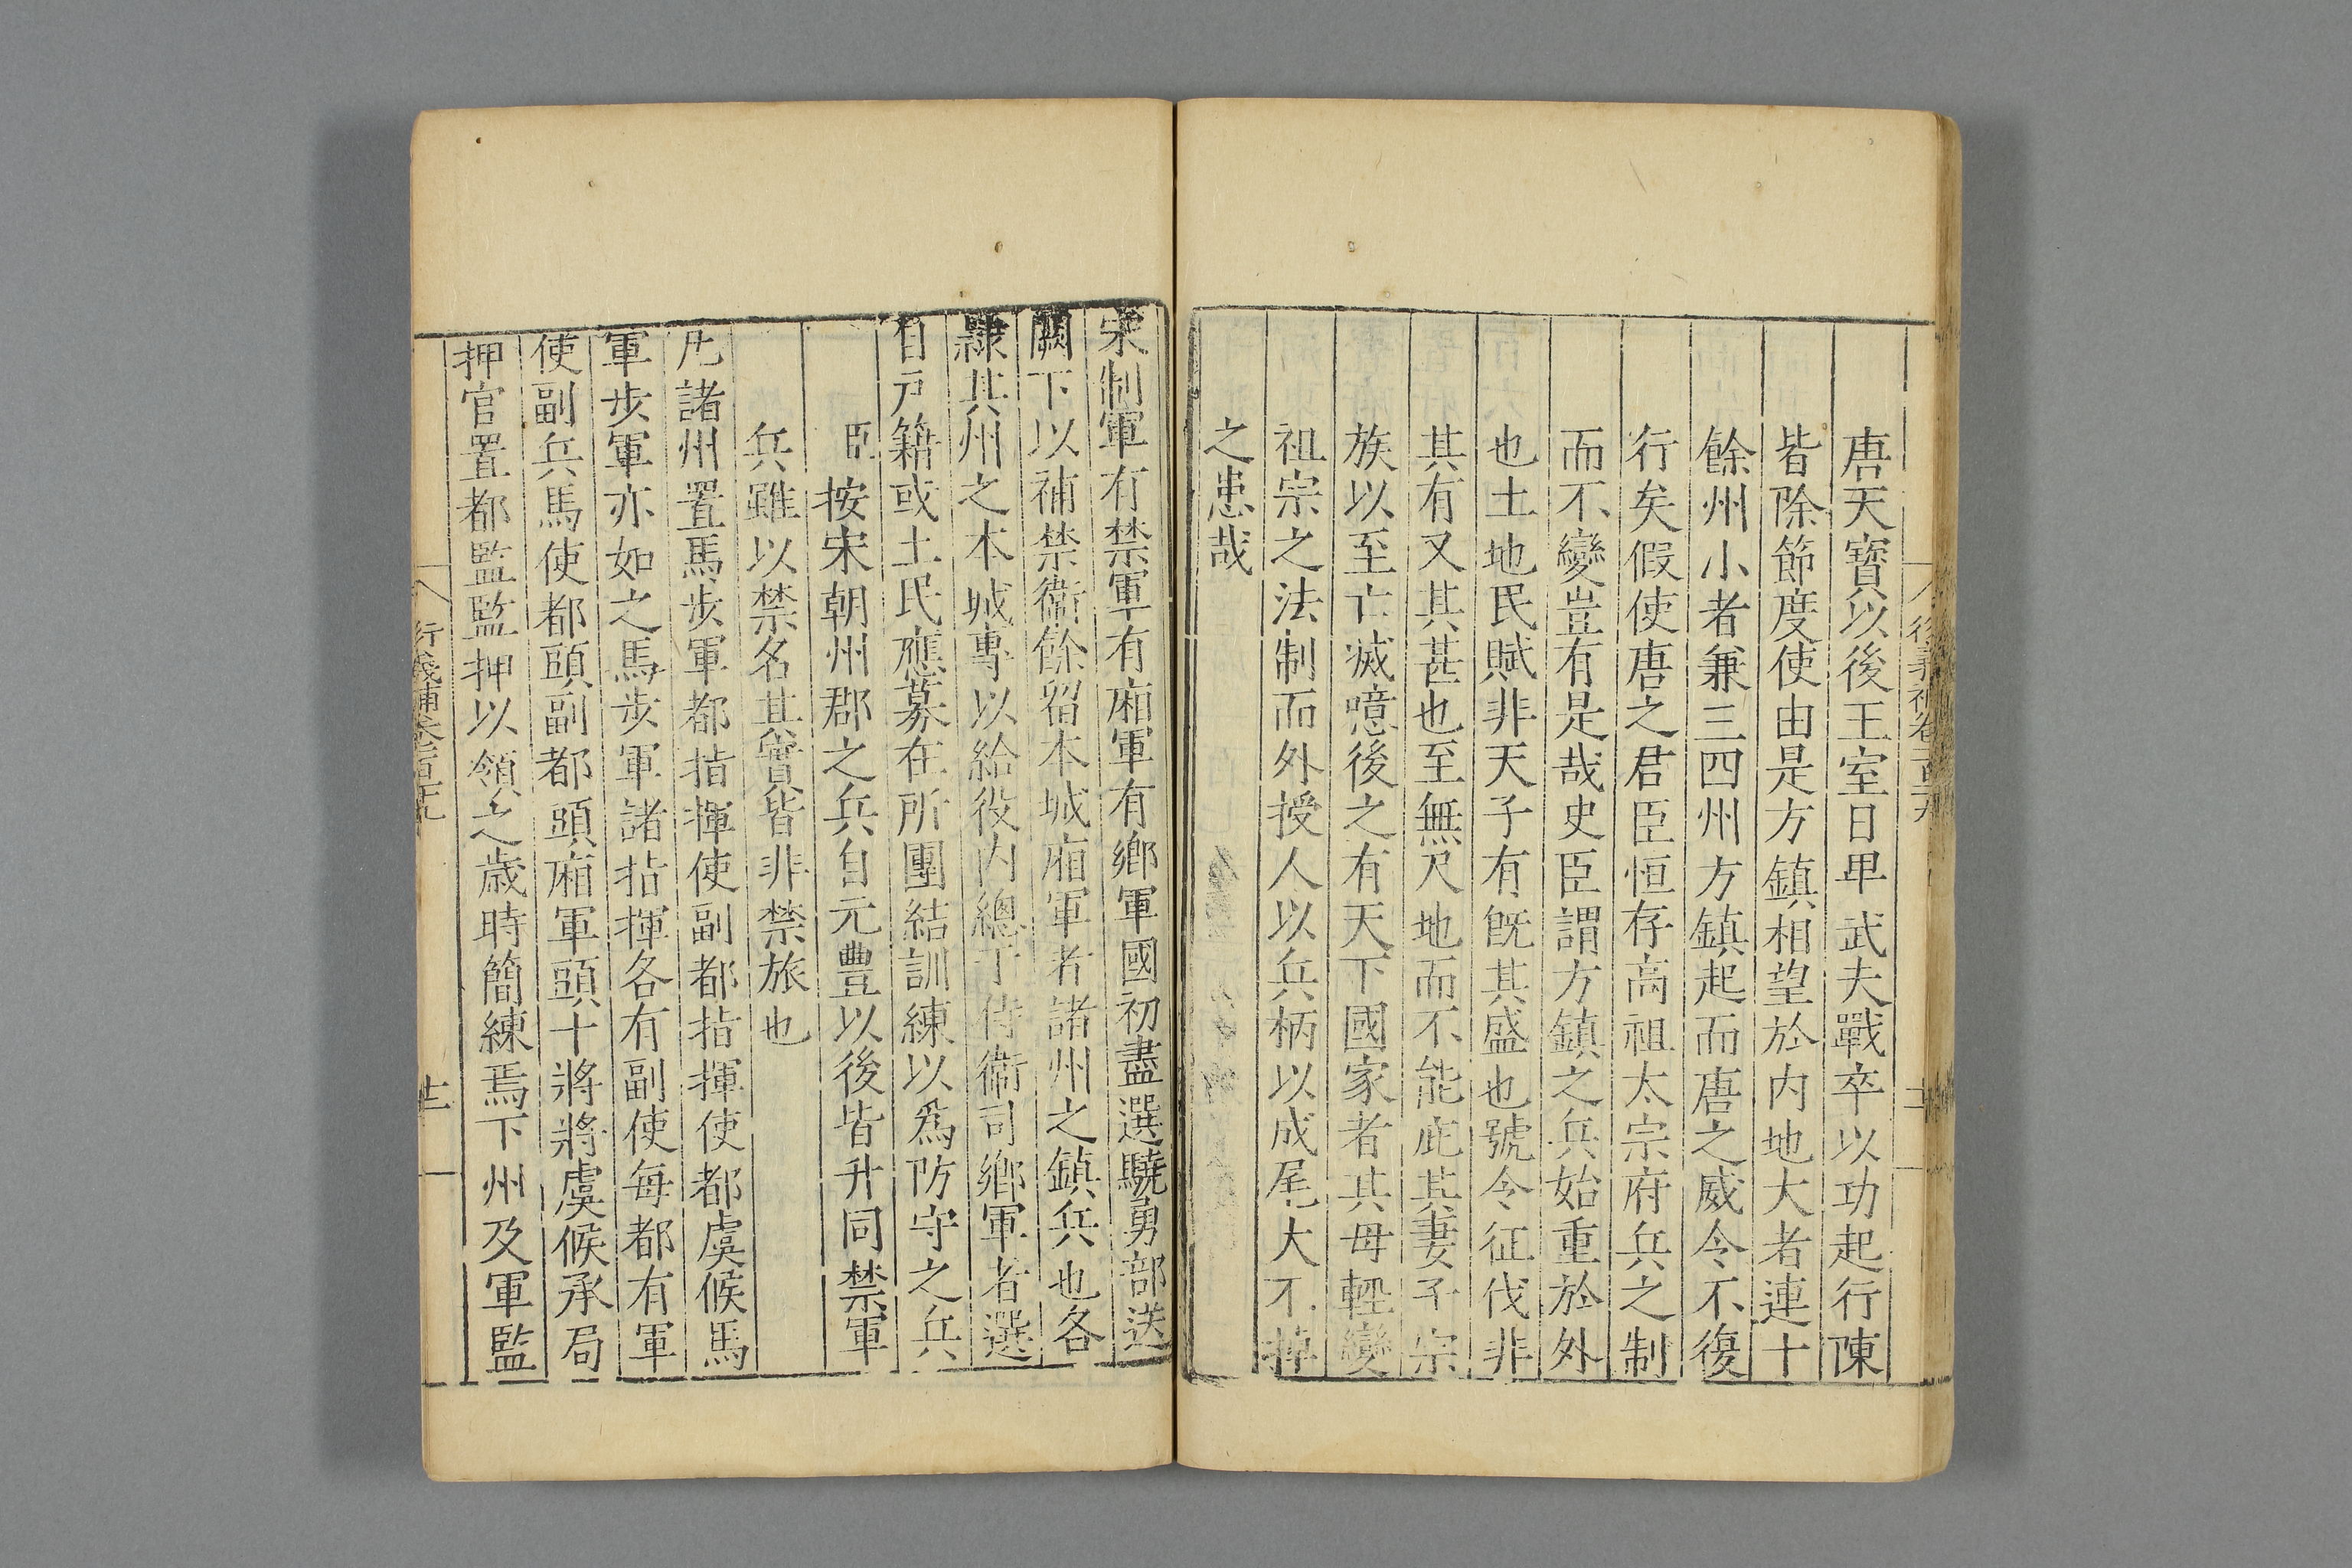 唐天寶以後王室日卑武夫戰卒以功起行陳
皆除節度使由是方鎮相望於内地大者連十
餘州小者兼三四州方鎮起而唐之威令不復
行矣假使唐之君臣恒存高祖太宗府兵之制
而不變豈有是哉史臣謂方鎮之兵始重於外
也土地民賦非天子有旣其盛也號令征伐非
其有又其甚也至無尺地而不能庇其妻子宗
族以至亡滅噫後之有天下國家者其毋輕變
祖宗之法制而外授人以兵柄以成尾大不掉
之患哉
宋制軍有禁軍有廂軍有鄉軍國初盡選驍勇部送
闕下以補禁衞餘留本城廂軍者諸州之鎮兵也各
隸其州之本城專以給役内總于侍衞司鄉軍者選
自戸籍或土民應募在所團結訓練以爲防守之兵
臣按宋朝州郡之兵自元豐以後皆升同禁軍
兵雖以禁名其實皆非禁旅也
凡諸州置馬步軍都指揮使副都指揮使都虞候馬
軍步軍亦如之馬步軍諸指揮各有副使每都有軍
使副兵馬使都頭副都頭廂軍頭十將將虞候承局
押官置都監監押以領之歳時簡練焉下州及軍監